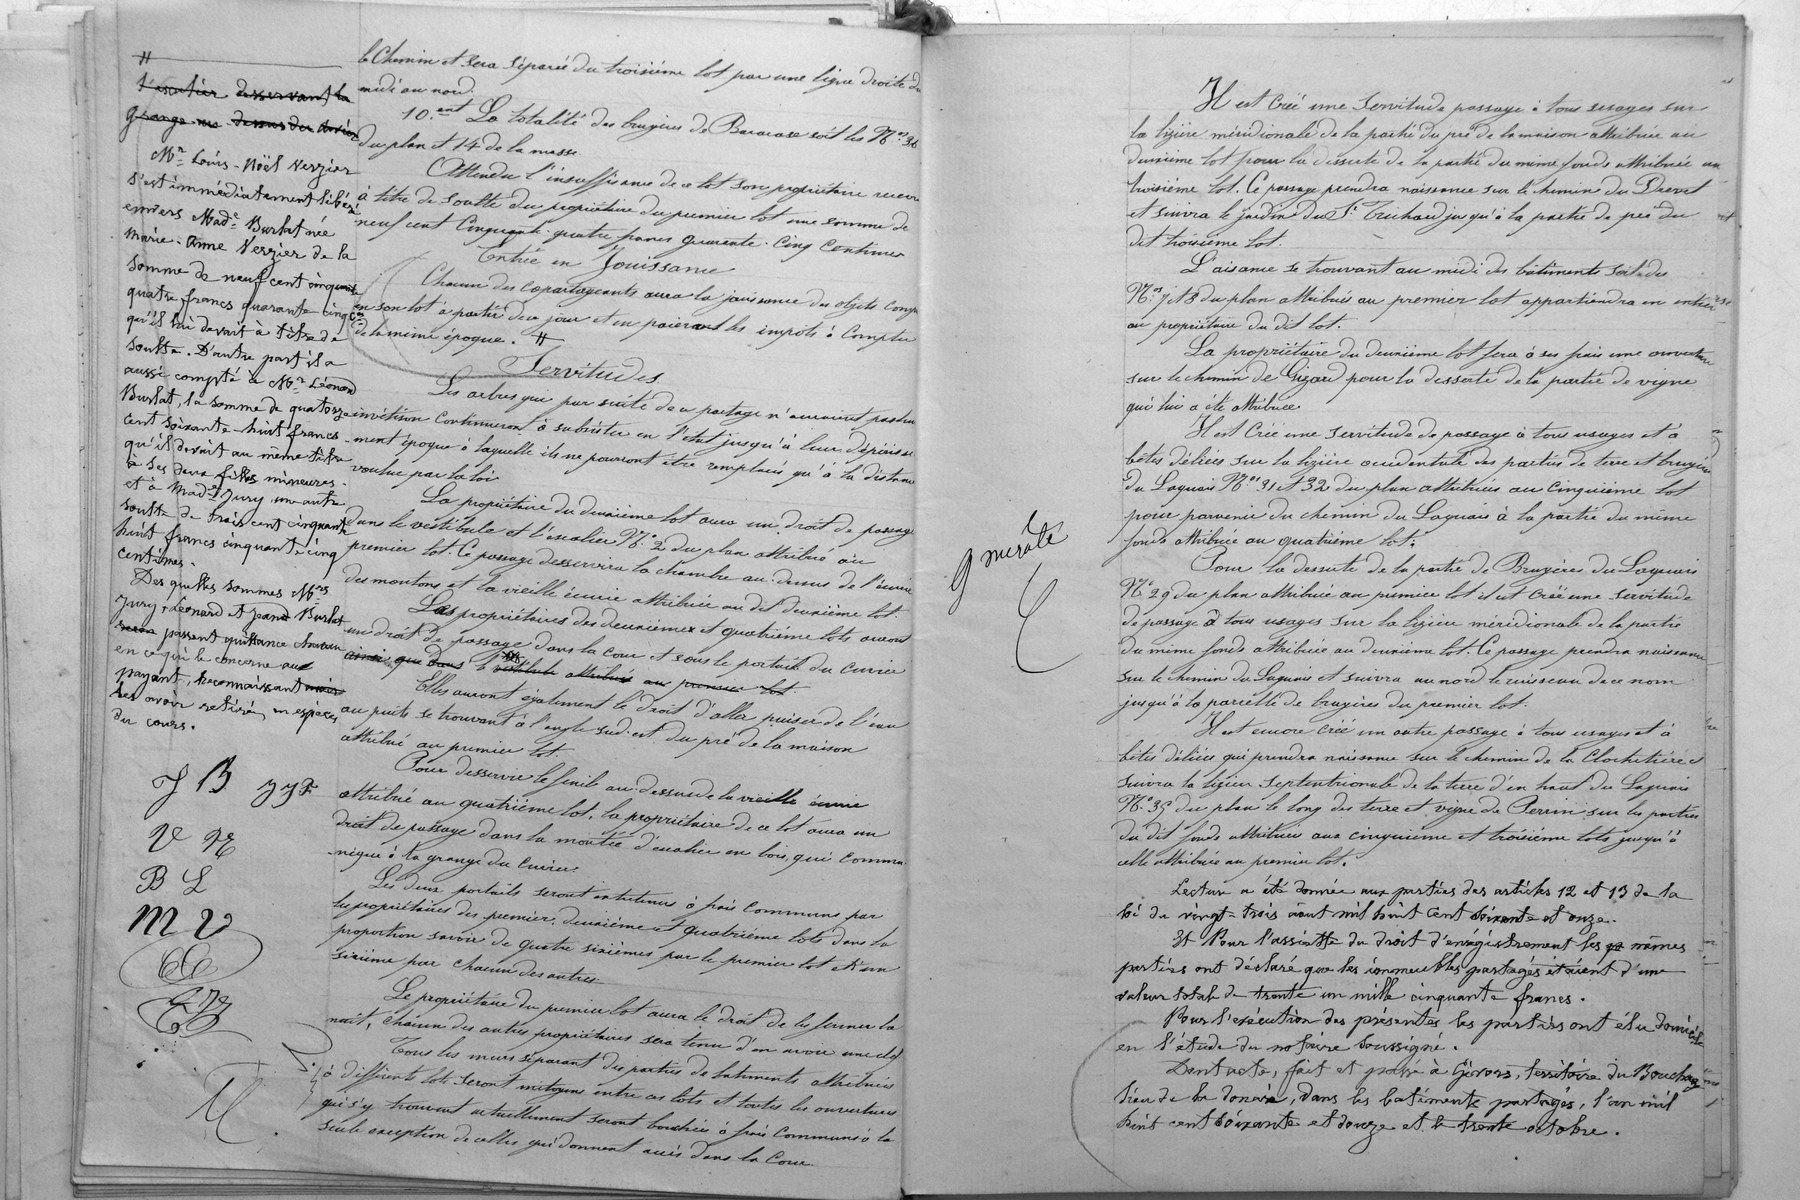 #
l'escalier desservant la
grange au dessus du cuvier
Mr Louis-Noël Verzier
s'est immédiatement libéré
envers Made Burlat née
Marie-Anne Verzier de la
somme de neuf cent cinquante
quatre francs quarante cinq c.
qu'il lui devait à titre de
soulte. D'autre part il a
aussi compté à Mr Léonard
Burlat, la somme de quatorze
cent soixante-huit francs
qu'il devait au même titre
à ses deux filles mineures
et à Made Jury, une autre
soulte de trois cent cinquante
huit francs cinquante cinq
centimes.
Des quelles sommes Mrs
Jury, Léonard et Jean Burlat
passent quittance chacun
en ce qui le concerne au
payant, reconnaissant
les avoir retirés en espèces
du cours.
J B JJF
V
B L
M V
le Chemin et sera séparée du troisième lot par une ligne droite du
midi au nord.
10.ent La totalité des bruyères de soit les Nos 36
du plan et 14 de la masse
Attendu l'insuffisance de ce lot son propriétaire recevra
à titre de soulte du propriétaire du premier lot une somme de
neuf cent Cinquante-quatre francs quarante-Cinq Centimes
Entrée en Jouissance
Chacun des copartageants aura la jouissance des objets compris
en son lot à partir de ce jour et en paieront les impôts à Compter
de la même époque. #
Servitudes
Les arbres qui par suite de ce partage n'auraient pas leur
Continueront à subsister en l'état jusqu'à leur dépérisse
-ment époque à laquelle ils ne pourront être remplacés qu'à la distance
voulue par la loi
La propriétaire du deuxième lot aura un droit de passage
dans le vestibule et l'escalier No 2 du plan attribué au
premier lot. Ce passage desservira la chambre au-dessus de l'écurie
des moutons et la vieille écurie attribuée au dit deuxième lot.
Les propriétaires des deuxième et quatrième lots auront
un droit de passage dans la cour et sous le portail du cuvier
ainsi que dans le vestibule attribué au premier lot
Elles auront également le droit d'aller puiser de l'eau
au puits se trouvant à l'angle sud-est du pré de la maison
attribué au premier lot.
Pour desservir le fenil au-dessus de la vieille écurie
attribué au quatrième lot, la propriétaire de ce lot aura un
droit de passage dans la montée d'escalier en bois, qui commu-
nique à la grange du Cuvier.
Les deux portails seront entretenus à frais Communs par
les propriétaires des premier, deuxième et quatrième lots dans la
proportion savoir de quatre sixièmes par le premier lot et d'un
sixième par chacun des autres.
Le propriétaire du premier lot aura le droit de les fermer la
nuit, chacun des autres propriétaires sera tenu d'en avoir une clef
Tous les murs séparant des parties de bâtiments attribuées
à différents lots seront mitoyens entre ces lots et toutes les ouvertures
qui s'y trouvent actuellement seront bouchées à frais Communs à la
seule exception de celles qui donnent accès dans la Cour
Il est Créé une servitude passage à tous usages sur
la lizière méridionale de la partie du pré de la maison attribuée au
deuxième lot pour la desserte de la partie du même fonds attribuée au
troisième lot. Ce passage prendra naissance sur le chemin du Drevet
et suivra le jardin du Sr Trichard jusqu'à la partie de pré du
dit troisième lot.
L'aisance se trouvant au midi des bâtiments soit des
Nos 7 et 8 du plan attribués au premier lot appartiendra en entier
au propriétaire du dit lot.
La propriétaire du deuxième lot fera à ses frais une ouverture
sur le chemin de Gizard pour la desserte de la partie de vigne
qui lui a été attribuée.
Il est Créé une servitude de passage à tous usages et à
bêtes déliées sur la lizière occidentale des parties de terre et bruyère
du Laquais Nos 31 et 32 du plan attribuées au Cinquième lot
pour parvenir du chemin du Laquais à la partie du même
fonds attribuée au quatrième lot.
Pour la desserte de la partie de Bruyères du Laquais
No 29 du plan attribuée au premier lot il est Créé une servitude
de passage à tous usages sur la lizière méridionale de la partie
du même fonds attribuée au deuxième lot. Ce passage prendra naissance
sur le chemin du Laquais et suivra au nord le ruisseau de ce nom
jusqu'à la parcelle de bruyères du premier lot.
Il est encore Créé un autre passage à tous usages et à
bêtes déliées qui prendra naissance sur le chemin de la Clochetière
suivra la lizière septentrionale de la terre d'en haut du Laquais
No 35 du plan le long des terre et vigne de Perrin sur les parties
du dit fonds attribuées aux cinquième et troisième lots jusqu'à
celle attribuée au premier lot.
Lecture a été donnée aux parties des articles 12 et 13 de la
loi du vingt-trois août mil huit cent soixante et onze.
Et Pour l'assiette du droit d'enrégistrement les mêmes
parties ont déclaré que les immeubles partagés étaient d'une
valeur totale de trente un mille cinquante francs.
Pour l'exécution des présentes les parties ont élu domicile
en l'étude du notaire soussigné.
Dont acte, fait et passé à Givors, territoire du Bouchage
lieu de la , dans les bâtiments partagés, l'an mil
huit cent soixante et douze et le trente octobre.